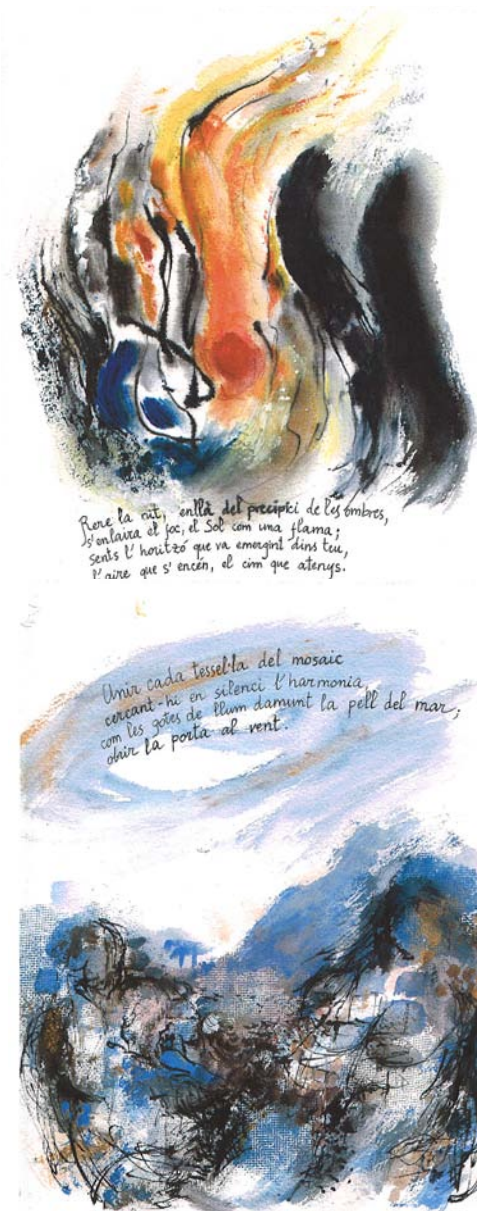 Rere la nit, enllà del precipici de les ombres,
s'enlaira el foc, el Sol com una flama;
sents l'horitzó que va emergint dins teu,
l'aire que s'encén, el cim que atenys.
Unir cada tessel·la del mosaic
cercant-hi en silenci l'harmonia,
com les gotes de llum damunt la pell del mar;
obrir la porta al vent.